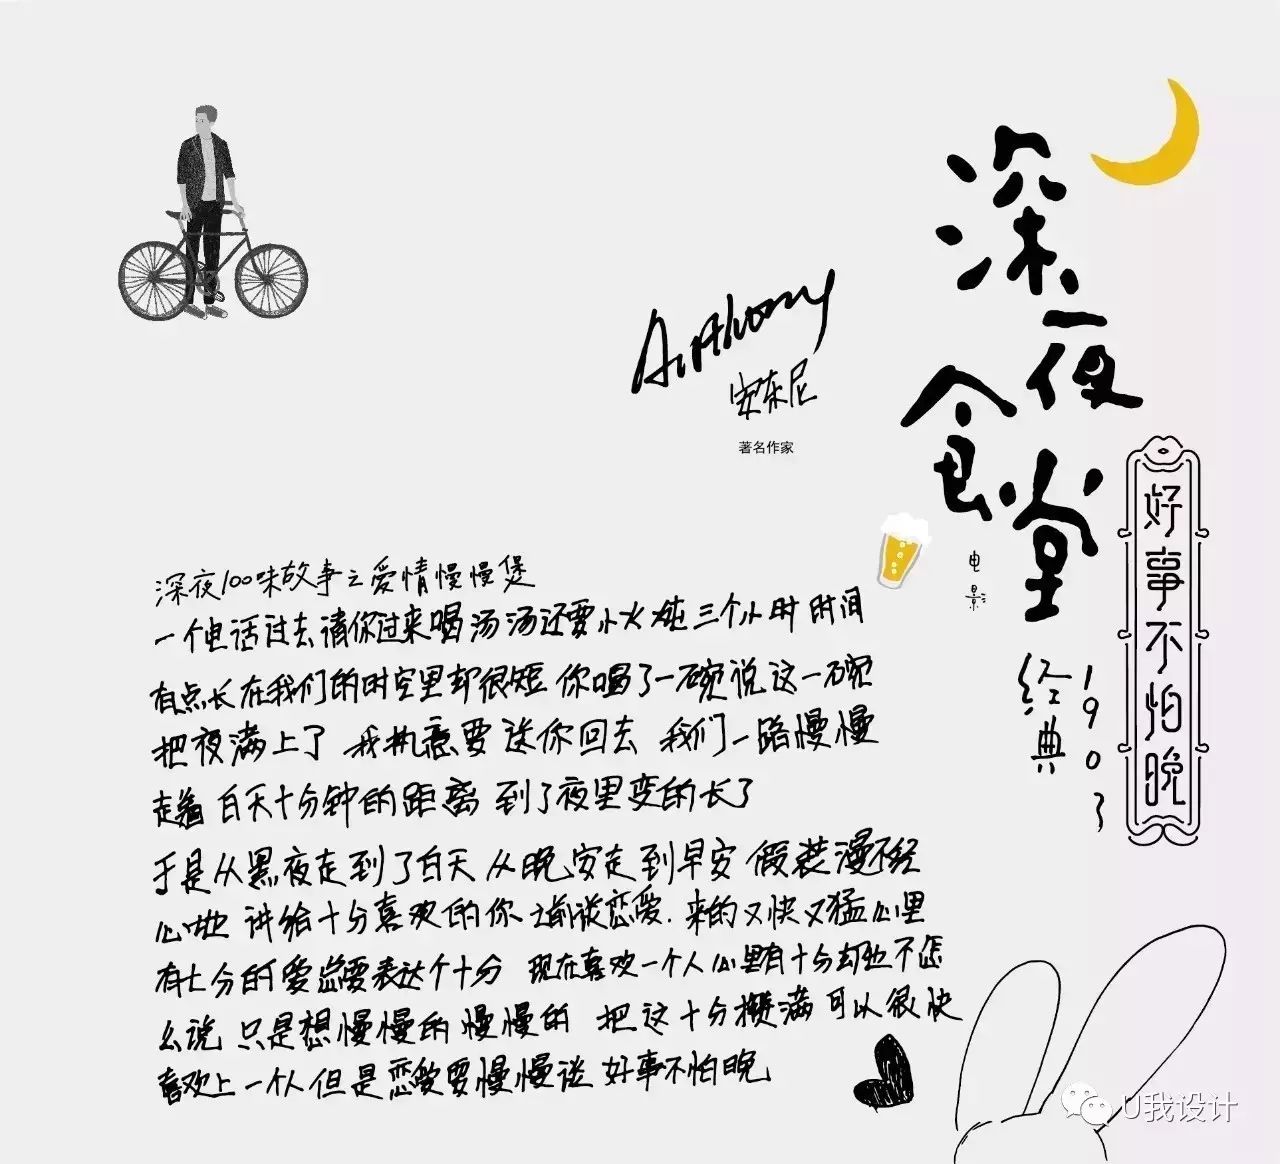 深夜
食堂
电影
经典
1903
好事不怕晚
Anthony
安东尼
著名作家
深夜100味故事之爱情慢慢煲
一个电话过去请你过来喝汤汤还要小火炖三个小时时间
有点长在我们的时空里却很短你喝了一碗说这一碗
把夜满上了 我执意要送你回去 我们一路慢慢
走着 白天十分钟的距离 到了夜里变的长了
于是从黑夜走到了白天 从晚安走到早安 假装漫不经
心地 讲给十分喜欢的你 之前谈恋爱.来的又快又猛心里
有七分的爱总要表达个十分 现在喜欢一个人心里有十分却也不怎
么说 只是想慢慢的慢慢的 把这十分攒满 可以很快
喜欢上一个人但是恋爱要慢慢谈 好事不怕晚
U我设计